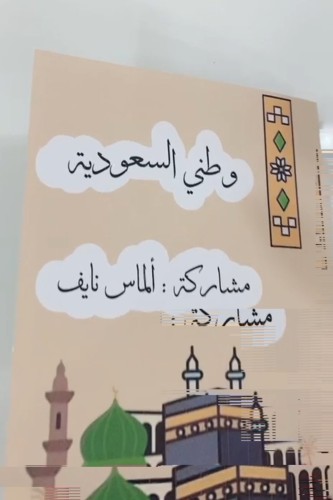 وطني السعودية
مشاركة : ألماس نايف
مشاركة :